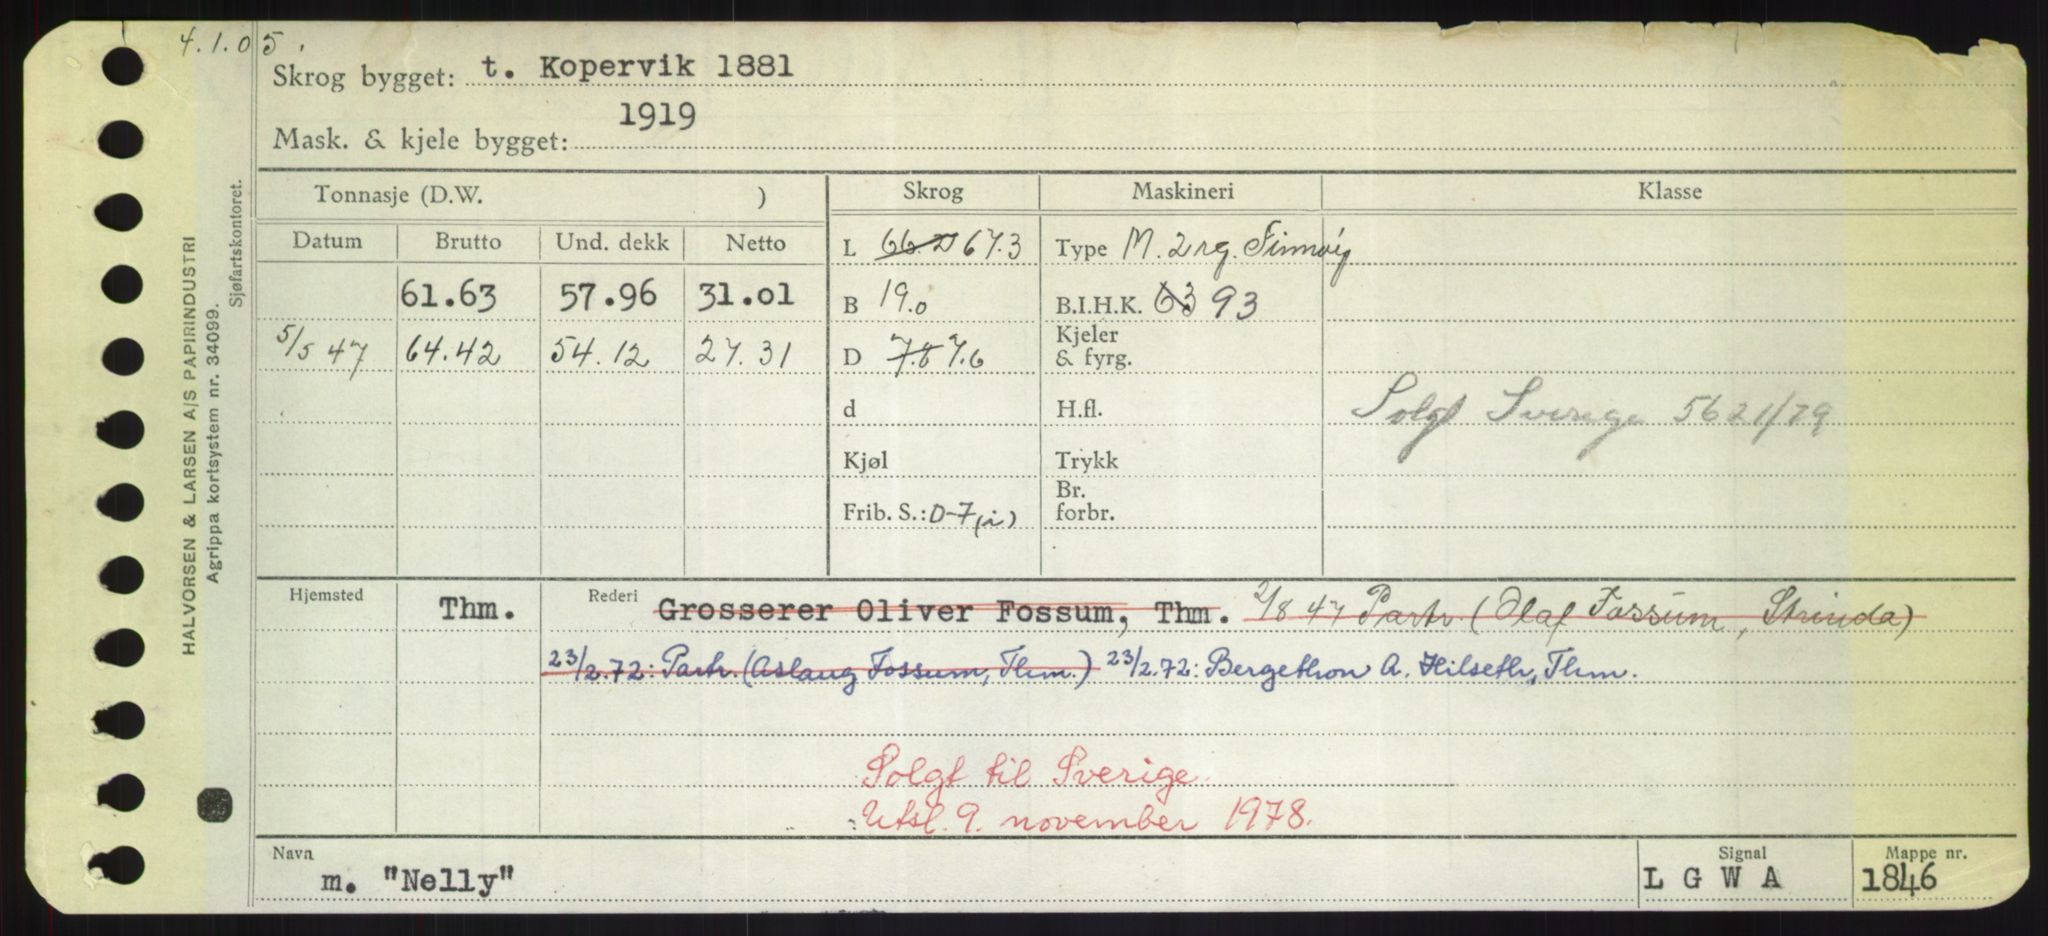 4.1.05.
Skrog bygget: t. Kopervik 1881
Mask. & kjele bygget: 1919
Tonnasje (D.W. ) Skrog Maskineri Klasse
Datum Brutto Und. dekk Netto L 67.3 Type M. 2 rg. Finnøy
61.63 57.96 31.01 B 19.0 B.I.H.K. 63 93
5/5 47 64.42 54.12 27.31 D 7.6 Kjeler & fyrg.
d H.fl. Solgt Sverige 5621/79
Kjøl Trykk
Frib. S.: 0-7 (i) Br. forbr.
Hjemsted Thm. Rederi Grosserer Oliver Fossum, Thm. 2/8 47 Partr. (Olaf Fossum, Strinda)
23/2.72: Partr. (Aslaug Fossum, Thm.) 23/2.72: Bergethon A. Hilseth, Thm.
Solgt til Sverige.
Utsl. 9. november 1978.
Navn m. "Nelly" Signal L G W A Mappe nr. 1846
HALVORSEN & LARSEN A/S PAPIRINDUSTRI
Agrippa kortsystem nr. 34099.
Sjøfartskontoret.